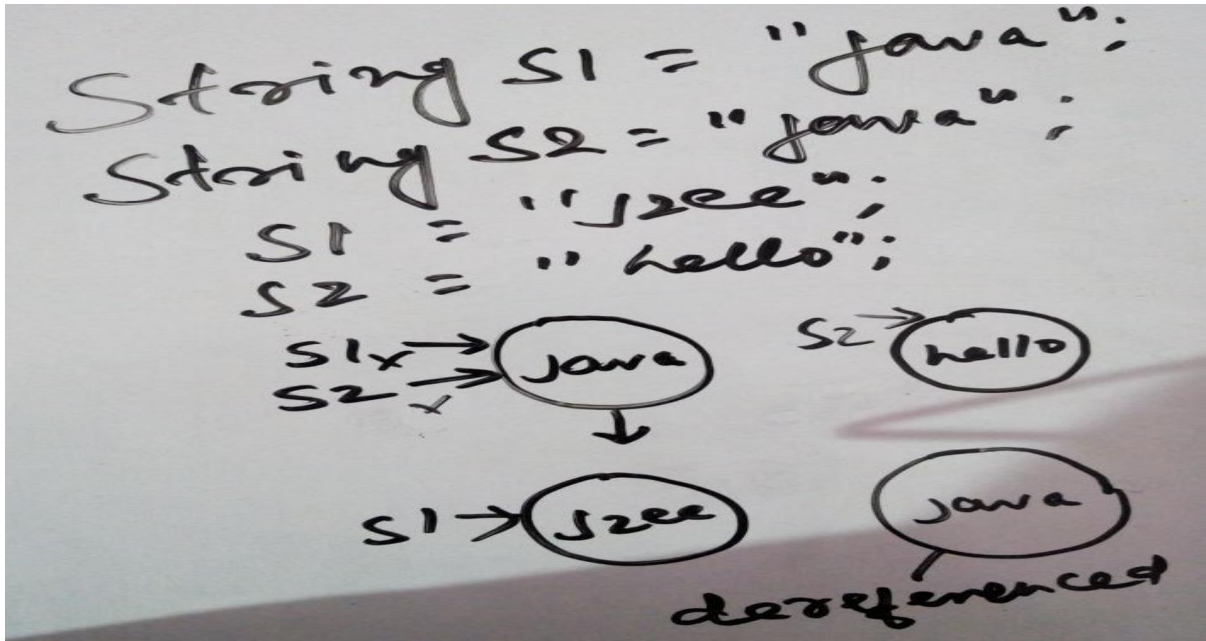 String S1 = "java";
String S2 = "java";
S1 = "J2ee";
S2 = "hello";
S1x → java
S2x →
S2 → hello
S1 → J2ee
java
dereferenced